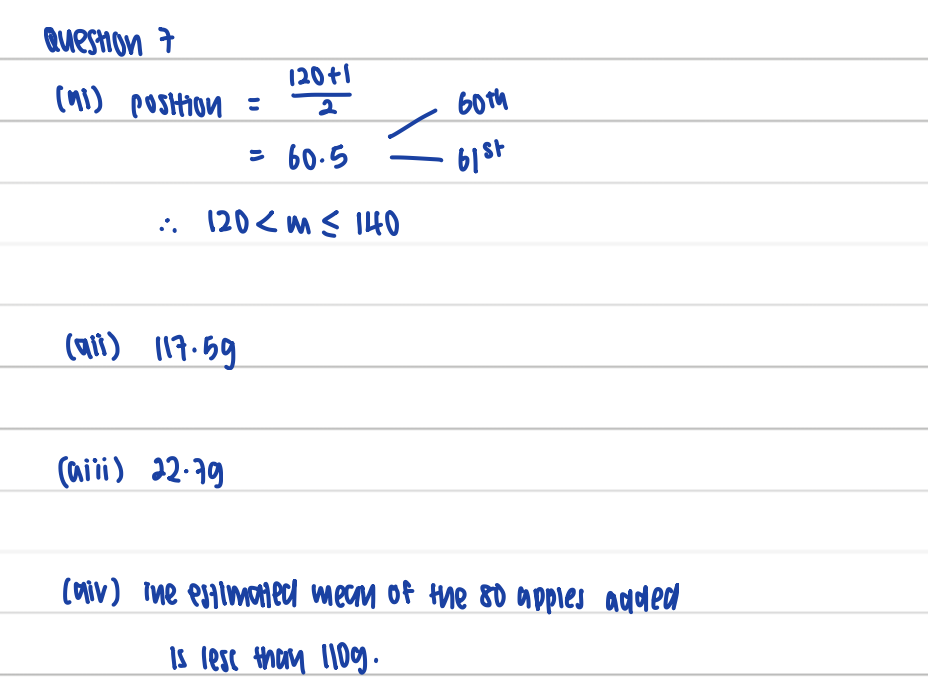 Question 7
(ai) position = \frac{120+1}{2} 60th
= 60.5 61st
∴ 120 < m ≤ 140
(aii) 117.5g
(aiii) 22.7g
(aiv) The estimated mean of the 80 apples added
is less than 110g.